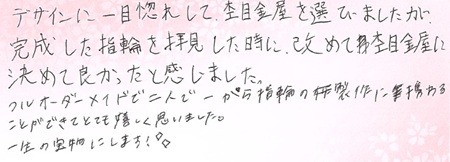 デザインに一目惚れして、杢目金屋を選びましたが、
完成した指輪を拝見した時に、改めて杢目金屋に
決めて良かったと感じました。
フルオーダーメイドで二人で一から指輪の製作に携わる
ことができてとても嬉しく思いました。
一生の宝物にします!